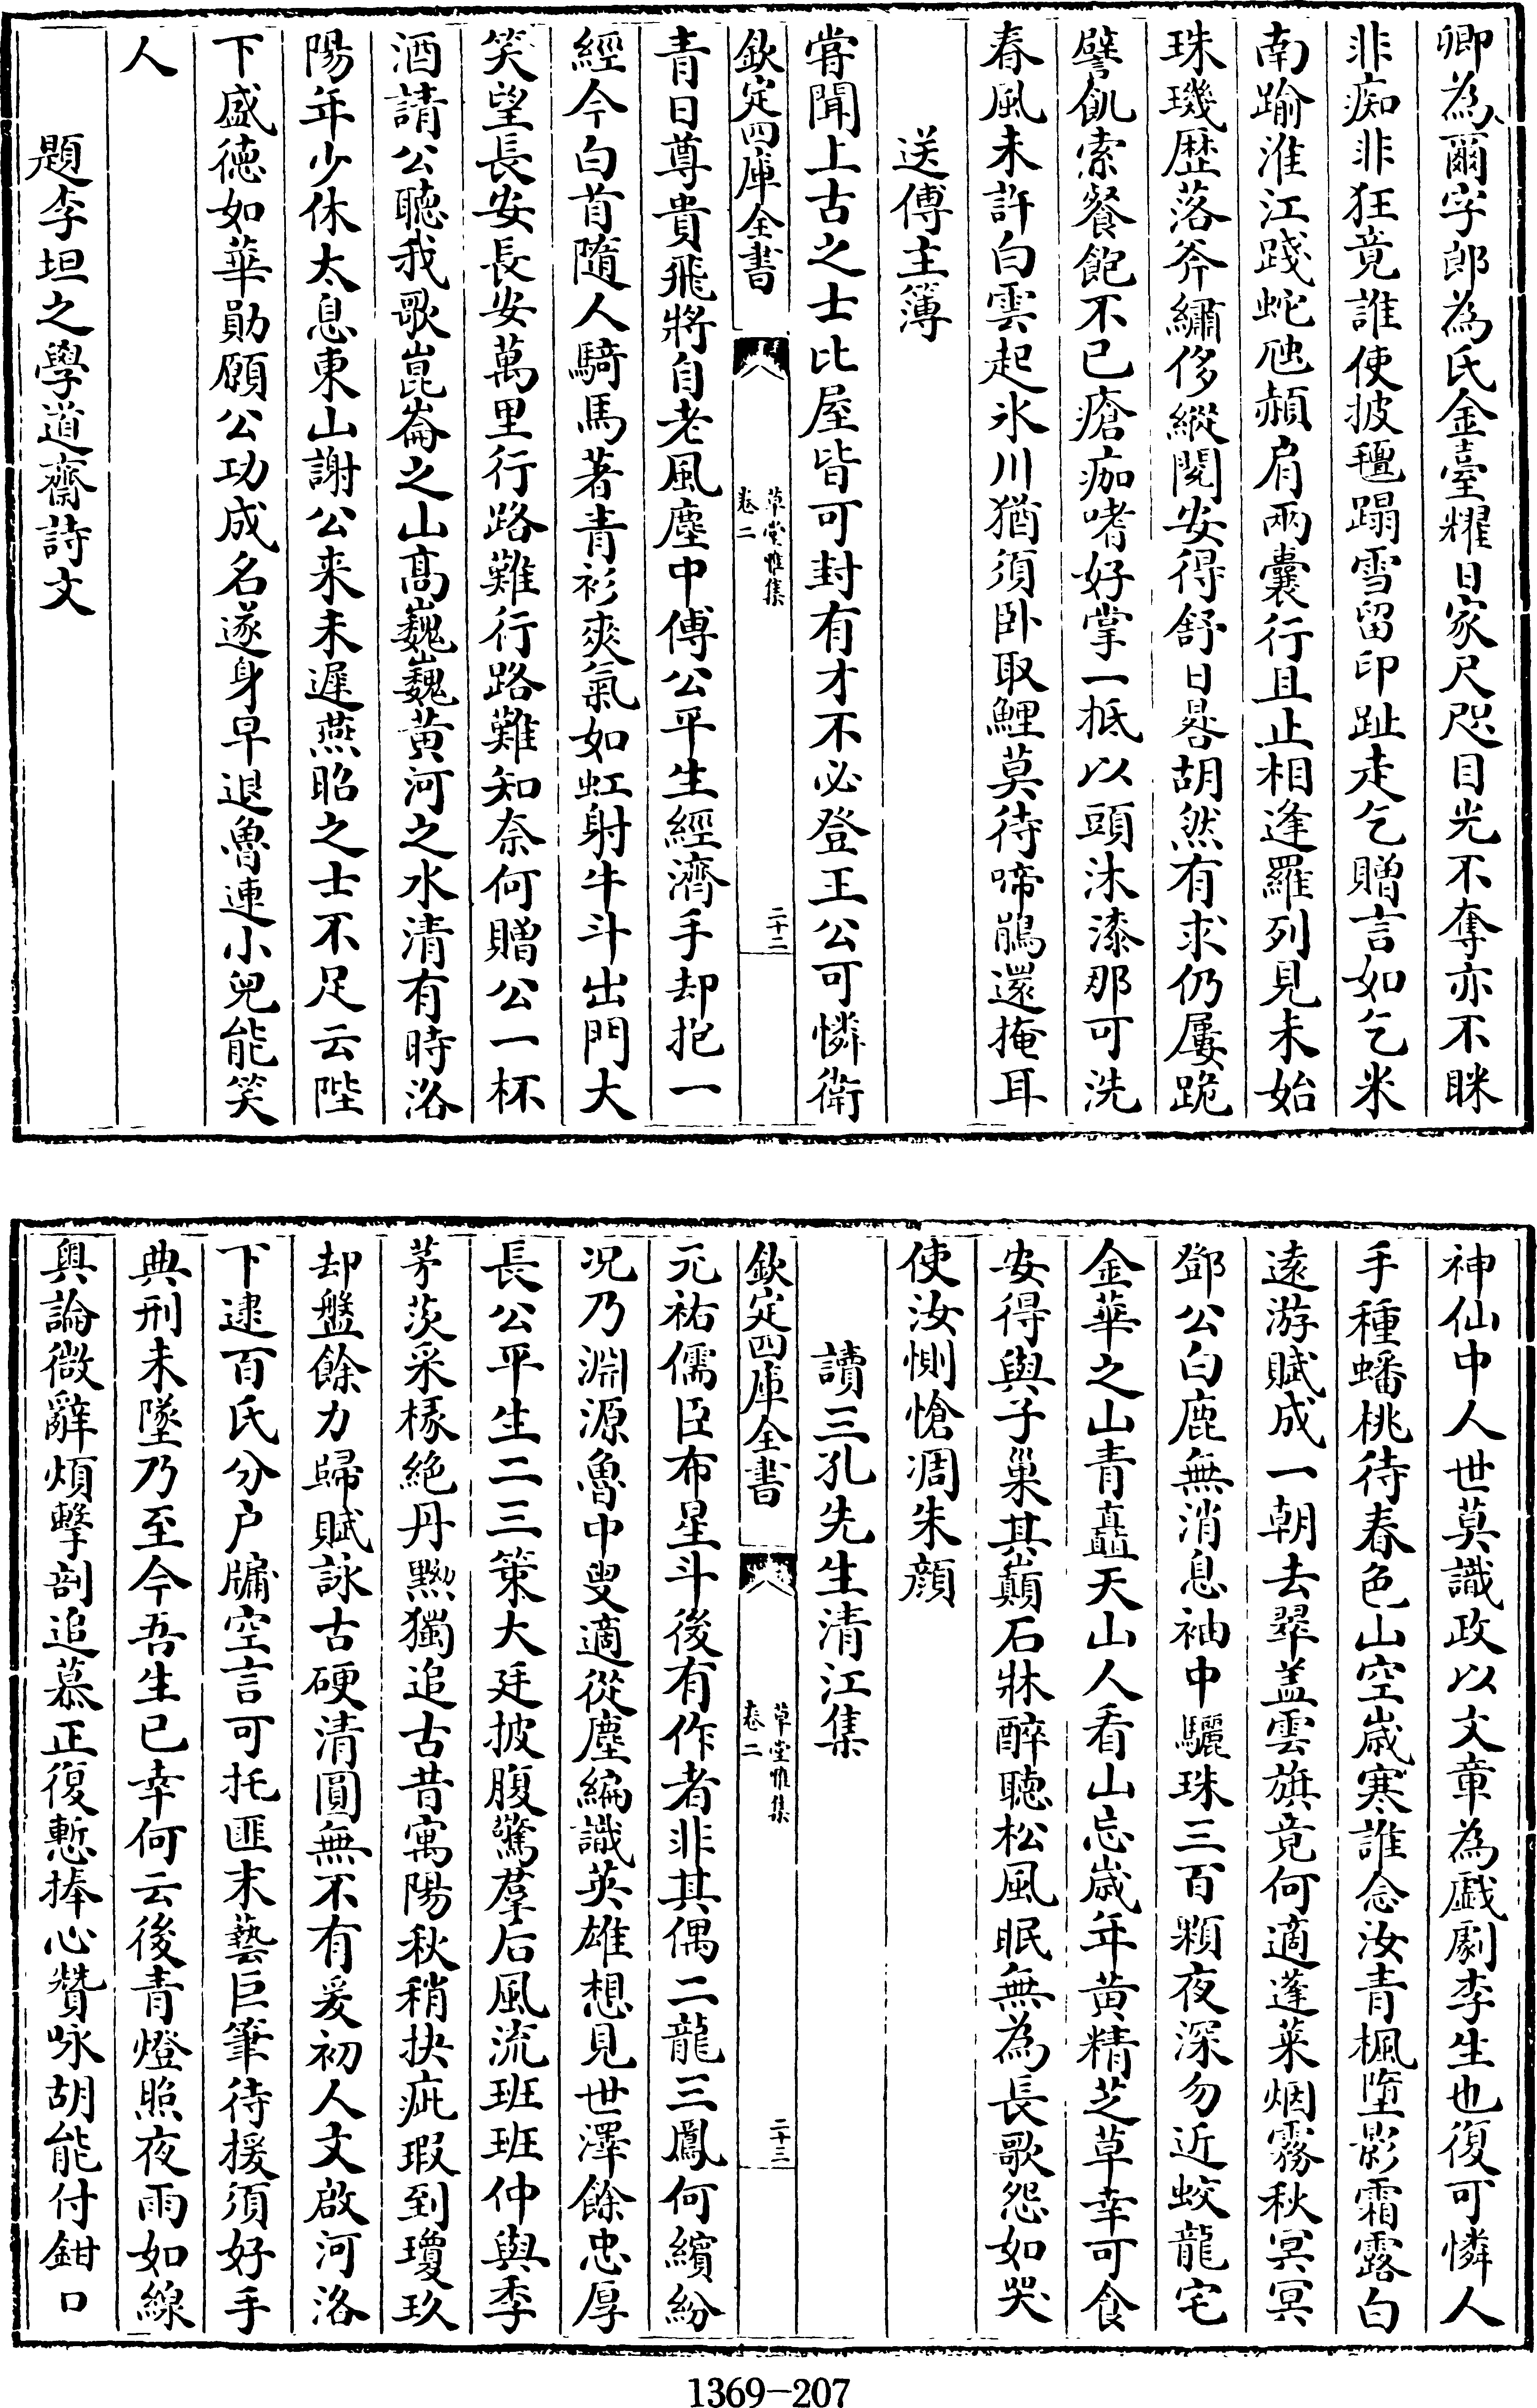 卿為人爾字郎為氏金臺耀日家尺咫目光不奪亦不眯
非痴非狂竟誰使披氊蹋雪留印趾走乞贈言如乞米
南踰淮江踐蛇虺頳肩兩囊行且止相逢羅列見未始
珠璣歴落斧繡侈縱閱安得舒日晷胡然有求仍屢跪
譬飢索餐飽不已瘡痂嗜好掌一抵以頭沐漆那可洗
春風未許白雲起氷川猶須卧取鯉莫待啼鵑還掩耳
送傅主簿
甞聞上古之士比屋皆可封有才不必登王公可憐衛
欽定四庫全書
草堂雅集
卷二
二十二
青日尊貴飛將自老風塵中傅公平生經濟手却抱一
經今白首隨人騎馬著青衫爽氣如虹射牛斗出門大
笑望長安長安萬里行路難行路難知奈何贈公一杯
酒請公聽我歌崑崙之山高巍巍黄河之水清有時洛
陽年少休太息東山謝公来未遲燕昭之士不足云陛
下盛徳如華勛願公功成名遂身早退魯連小兒能笑
人
題李坦之學道齋詩文
神仙中人世莫識政以文章為戯劇李生也復可憐人
手種蟠桃待春色山空歳寒誰念汝青楓墮影霜露白
逺游賦成一朝去翠盖雲旗竟何適蓬莱烟霧秋冥冥
鄧公白鹿無消息袖中驪珠三百顆夜深勿近蛟龍宅
金華之山青矗天山人看山忘歳年黄精芝草幸可食
安得與子巢其巔石牀醉聴松風眠無為長歌怨如哭
使汝惻愴凋朱顔
讀三孔先生清江集
欽定四庫全書
草堂雅集
卷二
二十三
元祐儒臣布星斗後有作者非其偶二龍三鳳何繽紛
况乃淵源魯中叟適從塵編識英雄想見世澤餘忠厚
長公平生二三策大廷披腹驚羣后風流班班仲與季
茅茨采椽絶丹黝獨追古昔寓陽秋稍抉疵瑕到瓊玖
却盤餘力歸賦詠古硬清圓無不有爰初人文啟河洛
下逮百氏分户牖空言可托匪末藝巨筆待援須好手
典刑未墜乃至今吾生已幸何云後青燈照夜雨如線
輿論微辭煩擊剖追慕正復慙捧心贊咏胡能付鉗口
1369-207